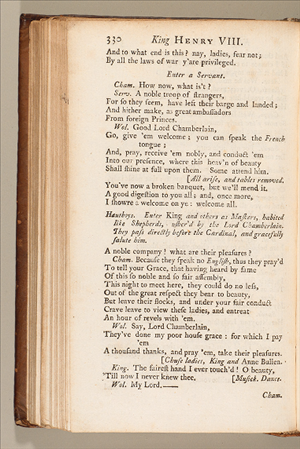 330 King HENRY VIII.
And to what end is this? nay, ladies, fear not;
By all the laws of war y'are privileged.
Enter a Servant.
Cham. How now, what is't?
Serv. A noble troop of strangers,
For so they seem, have left their barge and landed;
And hither make, as great ambassadors
From foreign Princes.
Wol. Good Lord Chamberlain,
Go, give 'em welcome; you can speak the French
tongue;
And, pray, receive 'em nobly, and conduct 'em
Into our presence, where this heav'n of beauty
Shall shine at full upon them. Some attend him.
[All arise, and tables removed.
You've now a broken banquet, but we'll mend it.
A good digestion to you all; and, once more,
I showre a welcome on ye: welcome all.
Hautboys. Enter King and others as Maskers, habited
like Shepherds, usher'd by the Lord Chamberlain.
They pass directly before the Cardinal, and gracefully
salute him.
A noble company! what are their pleasures?
Cham. Because they speak no English, thus they pray'd
To tell your Grace, that having heard by fame
Of this so noble and so fair assembly,
This night to meet here, they could do no less,
Out of the great respect they bear to beauty,
But leave their flocks, and under your fair conduct
Crave leave to view these ladies, and entreat
An hour of revels with 'em.
Wol. Say, Lord Chamberlain,
They've done my poor house grace: for which I pay
'em
A thousand thanks, and pray 'em, take their pleasures.
[Chuse ladies, King and Anne Bullen.
King. The fairest hand I ever touch'd! O beauty,
'Till now I never knew thee. [Musick. Dance.
Wol. My Lord,——
Cham.